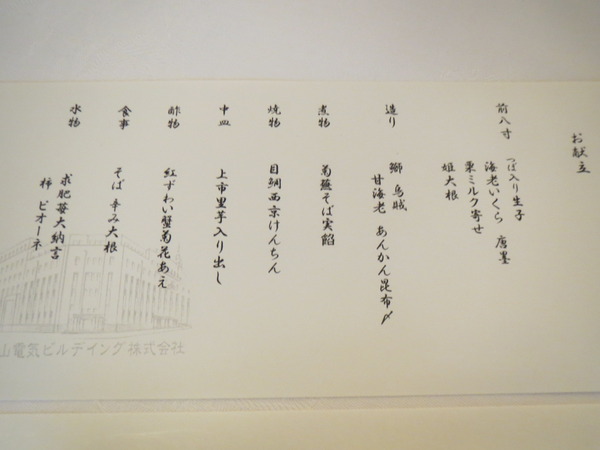 お献立
前八寸
つぼ入り生子
海老いくら 唐墨
栗ミルク寄せ
姫大根
造り
鰤 烏賊
甘海老 あんかん昆布〆
煮物
菊蕪そば実餡
焼物
目鯛西京けんちん
中皿
上市里芋入り出し
酢物
紅ずわい蟹菊花あえ
食事
そば 辛み大根
水物
求肥苺大納言
柿 ピオーネ
山電気ビルデイング株式会社